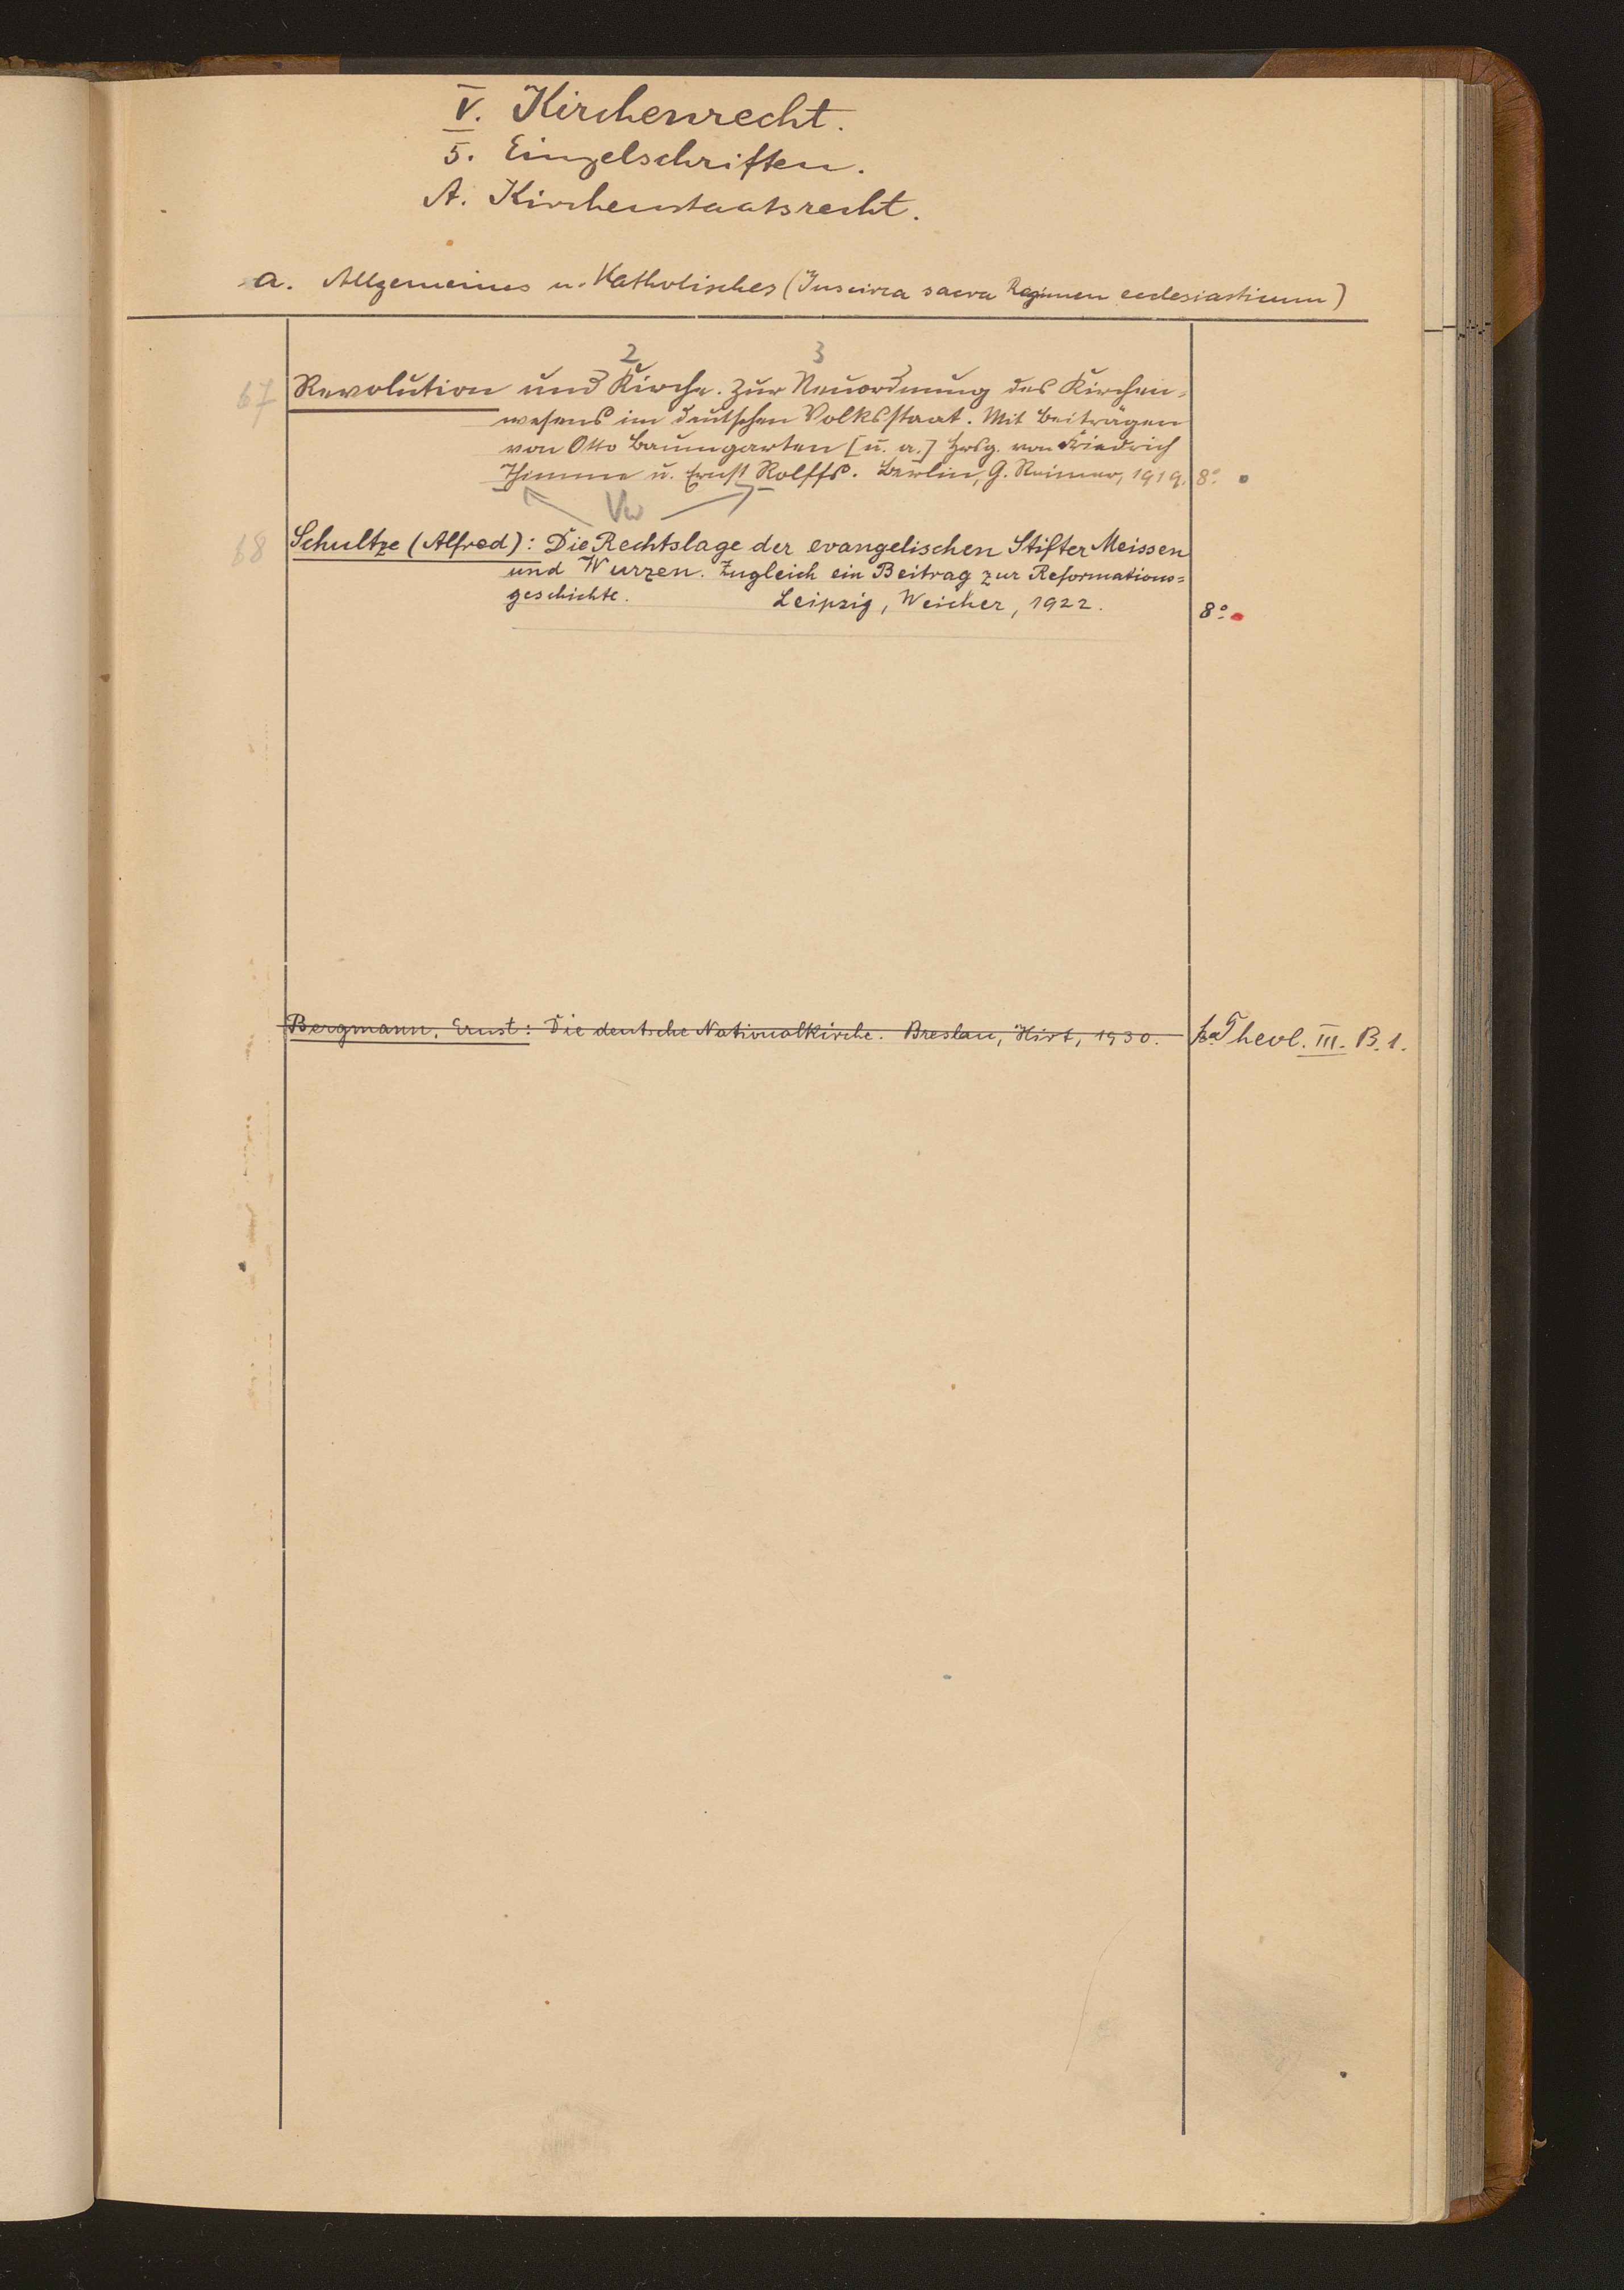 V. Kirchenrecht.
5. Einzelschriften.
A. Kirchenstaatsrecht.
a. Allgemeines u. Katholisches (Jus circa sacra Regimen ecclesiasticum)
2 3
67 Revolution und Kirche. Zur Neuordnung des Kirchen-
wesens im deutschen Volksstaat. Mit Beiträgen
von Otto Baumgarten [u. a.] hrsg. von Friedrich
Thimme u. Ernst Rolffs. Berlin, G. Reimer, 1919. 8°.
Vw
68 Schultze (Alfred): Die Rechtslage der evangelischen Stifter Meissen
und Wurzen. Zugleich ein Beitrag zur Reformations=
geschichte. Leipzig, Weicher, 1922. 8°.
Bergmann, Ernst: Die deutsche Nationalkirche. Breslau, Hirt, 1930. Theol. III. B. 1.